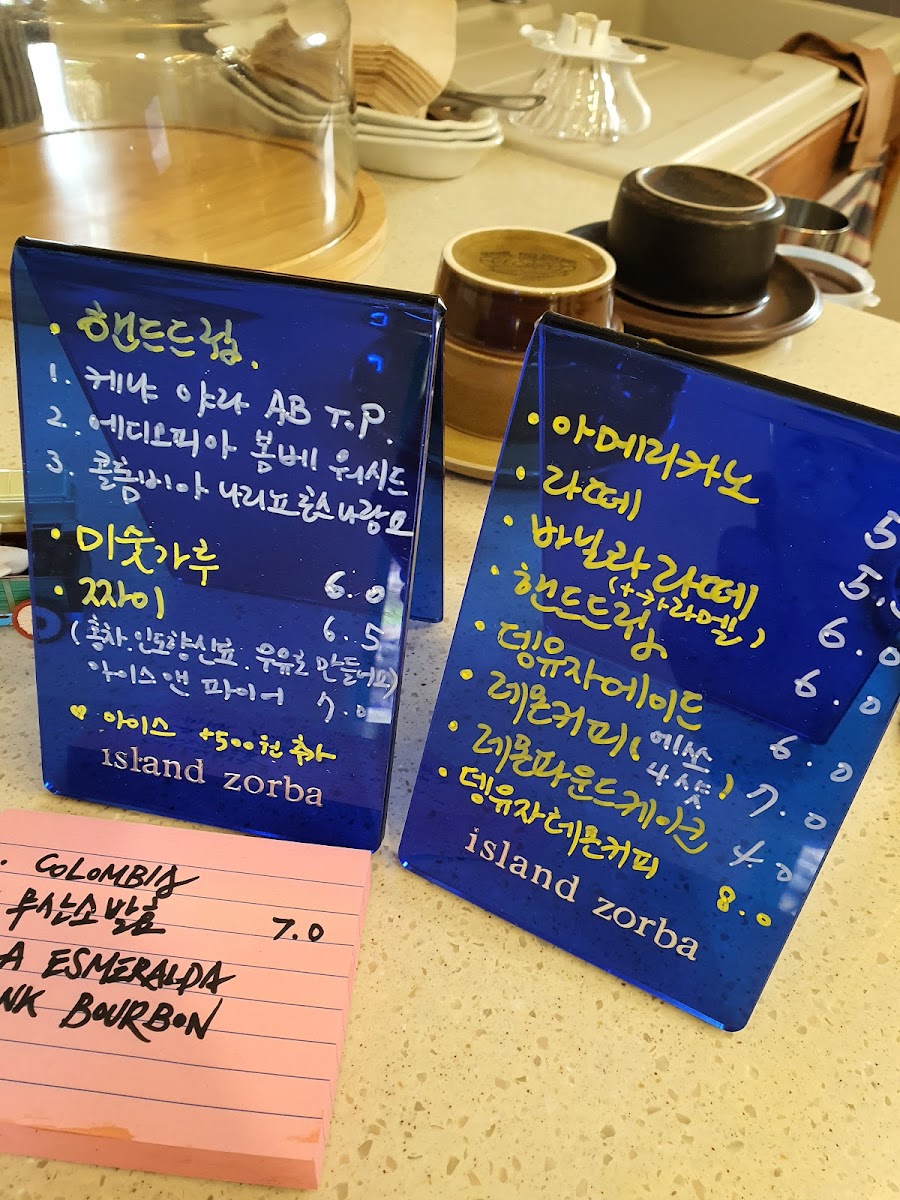 • 핸드드립.
1. 케냐 야라 AB T.P.
2. 에디오피아 봄베 워시드
3. 콜롬비아 나리뇨
• 미숫가루 6.0
• 짜이 6.5
(홍차.인도향신료.우유로 만들어요)
아이스 앤 파이어 7.0
♥ 아이스 +500원 추가
island zorba
• 아메리카노 5.
• 라떼 5.
• 바닐라 라떼 6.0
(+카라멜)
• 핸드드립 6.0
• 댕유자에이드 6.0
• 레몬커피(에쏘 4샷) 7.0
• 레몬파운드케이크 4.0
• 댕유자레몬커피 8.0
island zorba
. COLOMBIA
무산소발효 7.0
A ESMERALDA
NK BOURBON